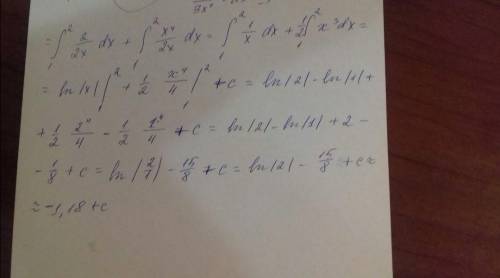 = ∫₁² 2/2x dx + ∫₁² x⁴/2x dx = ∫₁² 1/x dx + 1/2 ∫₁² x³dx =
= ln|x| |₁² + 1/2 x⁴/4 |₁² + c = ln|2| - ln|1| +
+ 1/2 2⁴/4 - 1/2 1⁴/4 + c = ln|2| - ln|1| + 2 -
- 1/8 + c = ln|2/1| - 15/8 + c = ln|2| - 15/8 + c ≈
≈ -1,18 + c